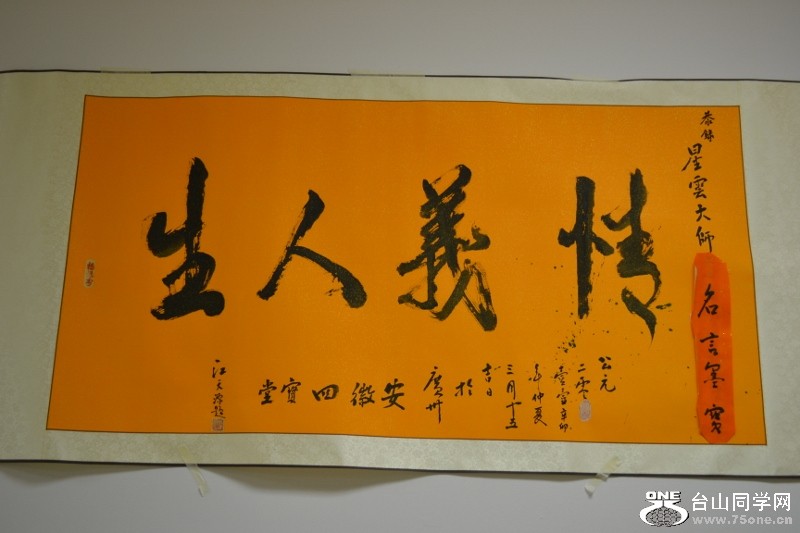 恭錄 星雲大師 名言墨寶
情義人生
公元
二零
辛卯
年仲夏
三月十五
吉日
於
廣州
安徽四寶堂
江
題
ONE
台山同学网
www.75one.cn